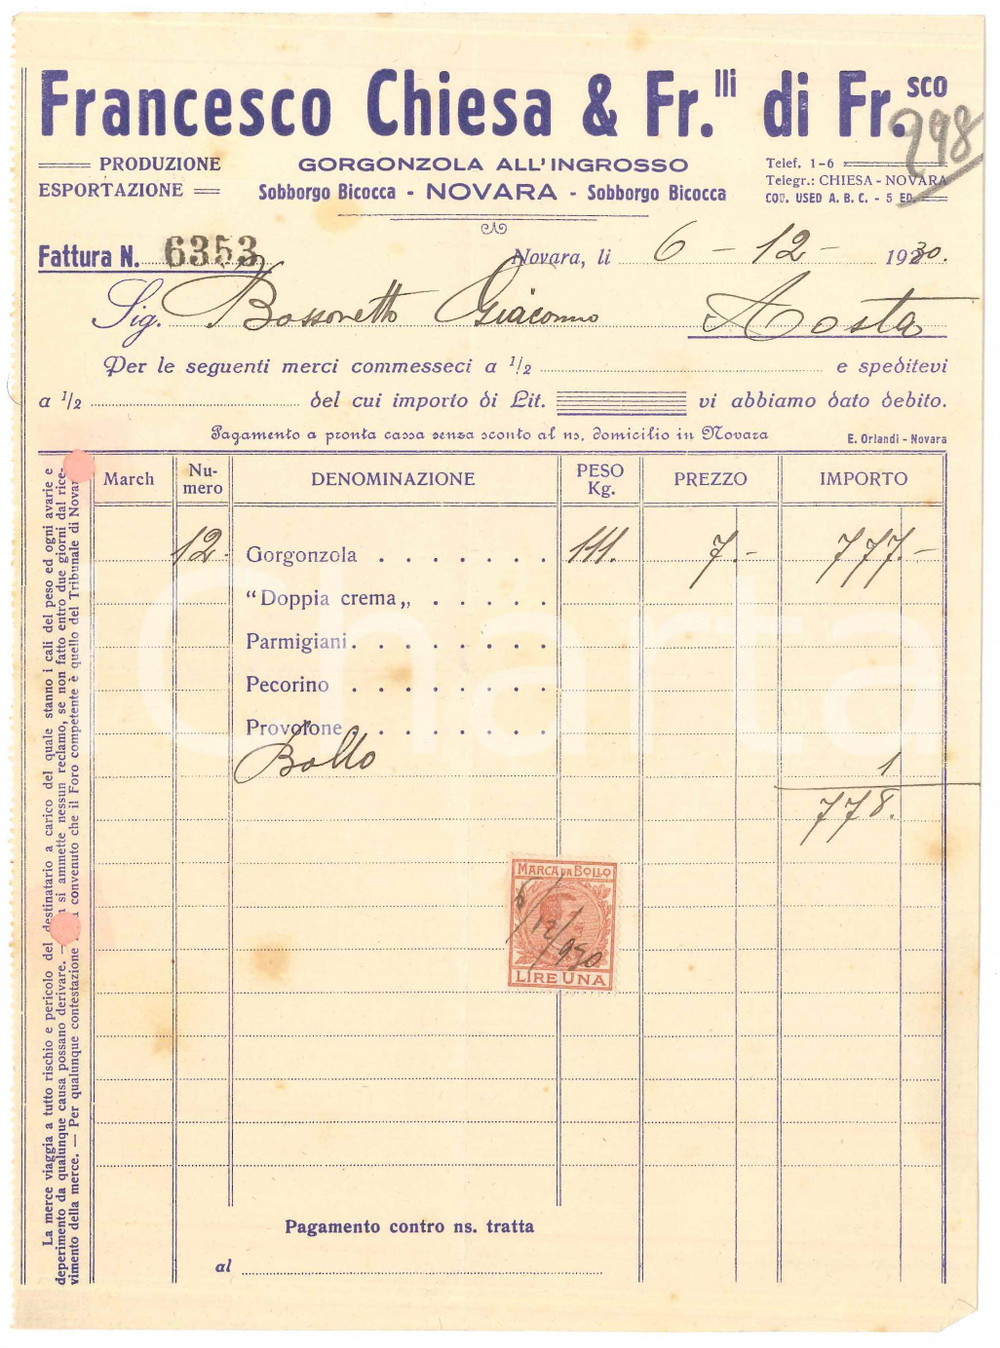 Francesco Chiesa & Fr.lli di Fr.sco
298
PRODUZIONE
ESPORTAZIONE
GORGONZOLA ALL'INGROSSO
Sobborgo Bicocca - NOVARA - Sobborgo Bicocca
Telef. 1-6
Telegr.: CHIESA - NOVARA
COD. USED A. B. C. - 5 ED.
Fattura N. 6353
Novara, li 6 - 12 - 1930.
Sig. Bossonetto Giacomo Aosta
Per le seguenti merci commesseci a 1/2 e speditevi
a 1/2 del cui importo di Lit. vi abbiamo dato debito.
Pagamento a pronta cassa senza sconto al ns. domicilio in Novara
E. Orlandi - Novara
March Nu-mero DENOMINAZIONE PESO Kg. PREZZO IMPORTO
12. Gorgonzola 111. 7.- 777.-
"Doppia crema„
Parmigiani
Pecorino
Provolone
Bollo 1
778.
MARCA DA BOLLO
6/12/930
LIRE UNA
Pagamento contro ns. tratta
al
La merce viaggia a tutto rischio e pericolo del destinatario a carico del quale stanno i cali del peso ed ogni avarie e
deperimento da qualunque causa possano derivare. — si ammette nessun reclamo, se non fatto entro due giorni dal rice-
vimento della merce. — Per qualunque contestazione convenuto che il Foro competente è quello del Tribunale di Novar
Charta